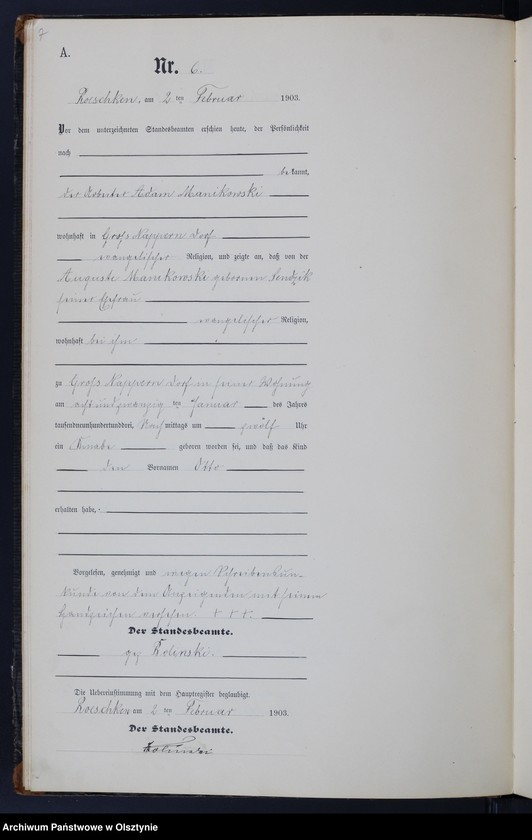 7
A.
Nr. 6.
Roeschken, am 2 ten Februar 1903.
Vor dem unterzeichneten Standesbeamten erschien heute, der Persönlichkeit
nach
bekannt,
der Arbeiter Adam Manikowski
wohnhaft in Groß Nappern Dorf
evangelischer Religion, und zeigte an, daß von der
Auguste Manikowski geborenen
seiner Ehefrau
evangelischer Religion,
wohnhaft bei ihm
zu Groß Nappern Dorf in seiner Wohnung
am achtundzwanzig ten Januar des Jahres
tausendneunhundertunddrei, Nachmittags um zwölf Uhr
ein Knabe geboren worden sei, und daß das Kind
den Vornamen Otto
erhalten habe,
Vorgelesen, genehmigt und wegen Schreibensun-
kunde von dem Anzeigenden mit seinem
Handzeichen versehen + + +.
Der Standesbeamte.
gez Kolinski.
Die Uebereinstimmung mit dem Hauptregister beglaubigt.
Roeschken am 2 ten Februar 1903.
Der Standesbeamte.
Kolinski
Archiwum Państwowe w Olsztynie